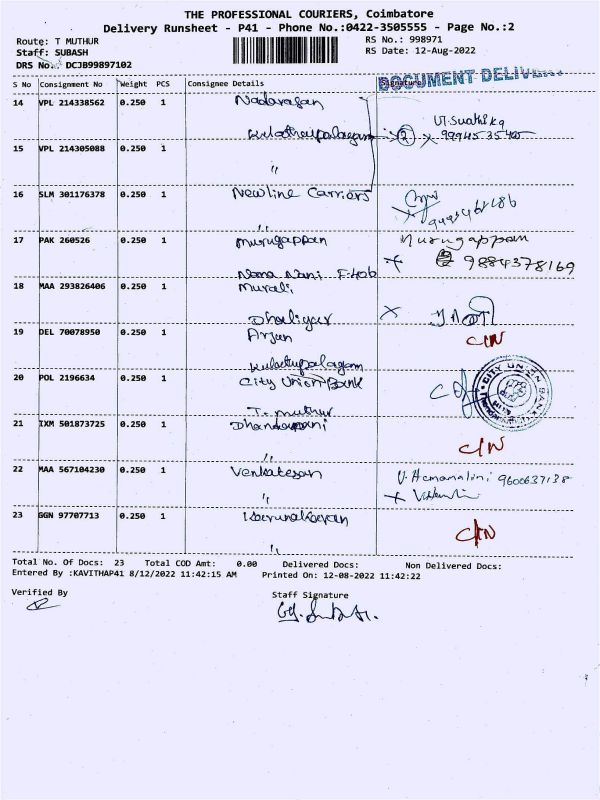 THE PROFESSIONAL COURIERS, Coimbatore
Delivery Runsheet - P41 - Phone No.:0422-3505555 - Page No.:2
Route: T MUTHUR
RS No.: 998971
Staff: SUBASH
RS Date: 12-Aug-2022
DRS No.: DCJB99897102
S No Consignment No Weight PCS Consignee Details Signature
DOCUMENT DELIVERY
14 VPL 214338562 0.250 1 Nadarajan
99945 35405
15 VPL 214305088 0.250 1 "
16 SLM 301176378 0.250 1 Newline Carriers
"
17 PAK 260526 0.250 1 Murugappan Murugappan
Nana Nani F-406 9884378169
18 MAA 293826406 0.250 1 Murali
Dhaliyur
19 DEL 70078950 0.250 1 Arjun C/N
Kulathupalayam
20 POL 2196634 0.250 1 City Union Bank CITY UNION BANK
T. Muthur
21 IXM 501873725 0.250 1 Dhandapani C/N
"
22 MAA 567104230 0.250 1 Venkatesan V. Hemamalini 9600637138
"
23 GGN 97707713 0.250 1 C/N
"
Total No. Of Docs: 23 Total COD Amt: 0.00 Delivered Docs: Non Delivered Docs:
Entered By :KAVITHAP41 8/12/2022 11:42:15 AM Printed On: 12-08-2022 11:42:22
Verified By
Staff Signature